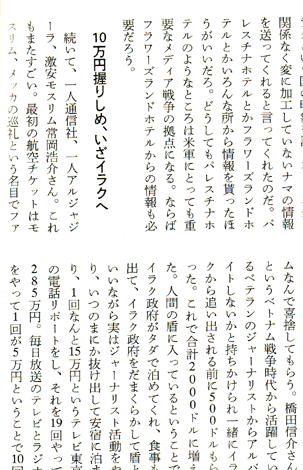 関係なく変に加工していないナマの情報
を送ってくれると言ってくれたのだ。パ
レスチナホテルとかフラワーズランドホ
テルとかいろんな所から情報を貰ったほ
うがいいだろ。どうしてもパレスチナホ
テルのようなところは米軍にとっても重
要なメディア戦争の拠点になる。ならば
フラワーズランドホテルからの情報も必
要だろう。
10万円握りしめ、いざイラクへ
続いて、一人通信社、一人アルジャジ
ーラ、激安モスリム常岡浩介さん。これ
もまたすごい。最初の航空チケットはモ
スリム、メッカの巡礼という名目でファ
ムなんで喜捨してもらう。橋田信介さ
というベトナム戦争時代から活躍してい
るベテランのジャーナリストからアルバ
イトしないかと持ちかけられ一緒にイラ
クから追い出される前に500ドルもら
った。これで合計2000ドルに増え
た。人間の盾に入っているということで
イラク政府がタダで泊めてくれ、食事も
出て、イラク政府をだまくらかして盾と
いいながら実はジャーナリスト活動をや
り、いつのまにか抜け出して安宿に泊ま
り、1回なんと15万円というテレビ東京
の電話リポートをし、それを19回やって
285万円。毎日放送のテレビとラジ
をやって1回が5万円ということで10回